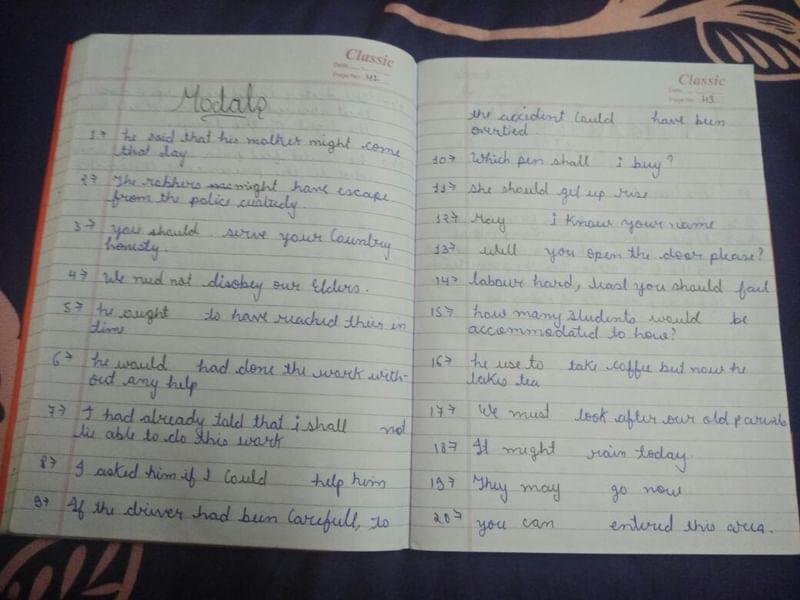 Classic
Date
Page No. 42
Modals
1→ he said that his mother might come
that day
2→ The robbers might have escape
from the police custody.
3→ you should serve your Country
honesty.
4→ We need not disobey our Elders.
5→ he ought to have reached their in
time
6→ he would had done the work with-
out any help
7→ I had already told that i shall not
be able to do this work
8→ I asked him if I Could help him
9→ If the driver had been Carefull, to
Classic
Date
Page No. 43
the accident Could have been
10→ Which pen shall i buy?
11→ she should get up rise
12→ May i know your name
13→ will you open the door please?
14→ labour hard, least you should fail
15→ how many students would be
accommodated to how?
16→ he use to take coffee but now he
takes tea
17→ We must look after our old parents
18→ It might rain today.
19→ They may go now
20→ you can entered this area.